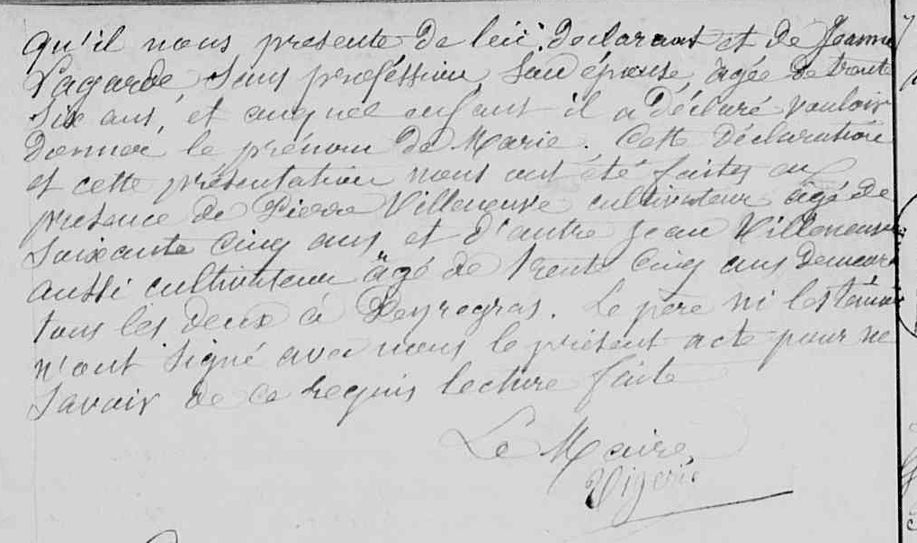 qu'il nous presente de lui, declarant et de Jeanne
Lagarde sans proféssion son épouse âgée de trente
Six ans, et auquel enfant il a déclaré vouloir
Donner le prénom de Marie. Cette Déclaration
et cette présentation nous ont été faites en
presence de Pierre Villeneuve cultivateur âgé de
soixante cinq ans et d'autre Jean Villeneuve
aussi cultivateur âgé de trente cinq ans demeurt
tous les deux à Peyrogras. Le père ni les témoins
n'ont signé avec nous le présent acte pour ne
savoir de ce requis lecture faite
Le Maire
Vigerie